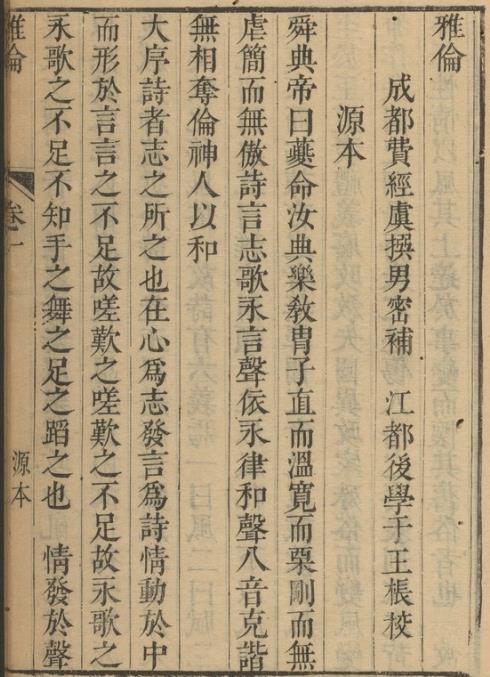 雅倫
成都費經虞撰男密補　江都後學于王棖校
源本
舜典帝曰夔命汝典樂敎冑子直而溫寬而栗剛而無
虐簡而無傲詩言志歌永言聲依永律和聲八音克諧
無相奪倫神人以和
大序詩者志之所之也在心爲志發言爲詩情動於中
而形於言言之不足故嗟歎之嗟歎之不足故永歌之
永歌之不足不知手之舞之足之蹈之也　情發於聲
雅倫　卷一　源本